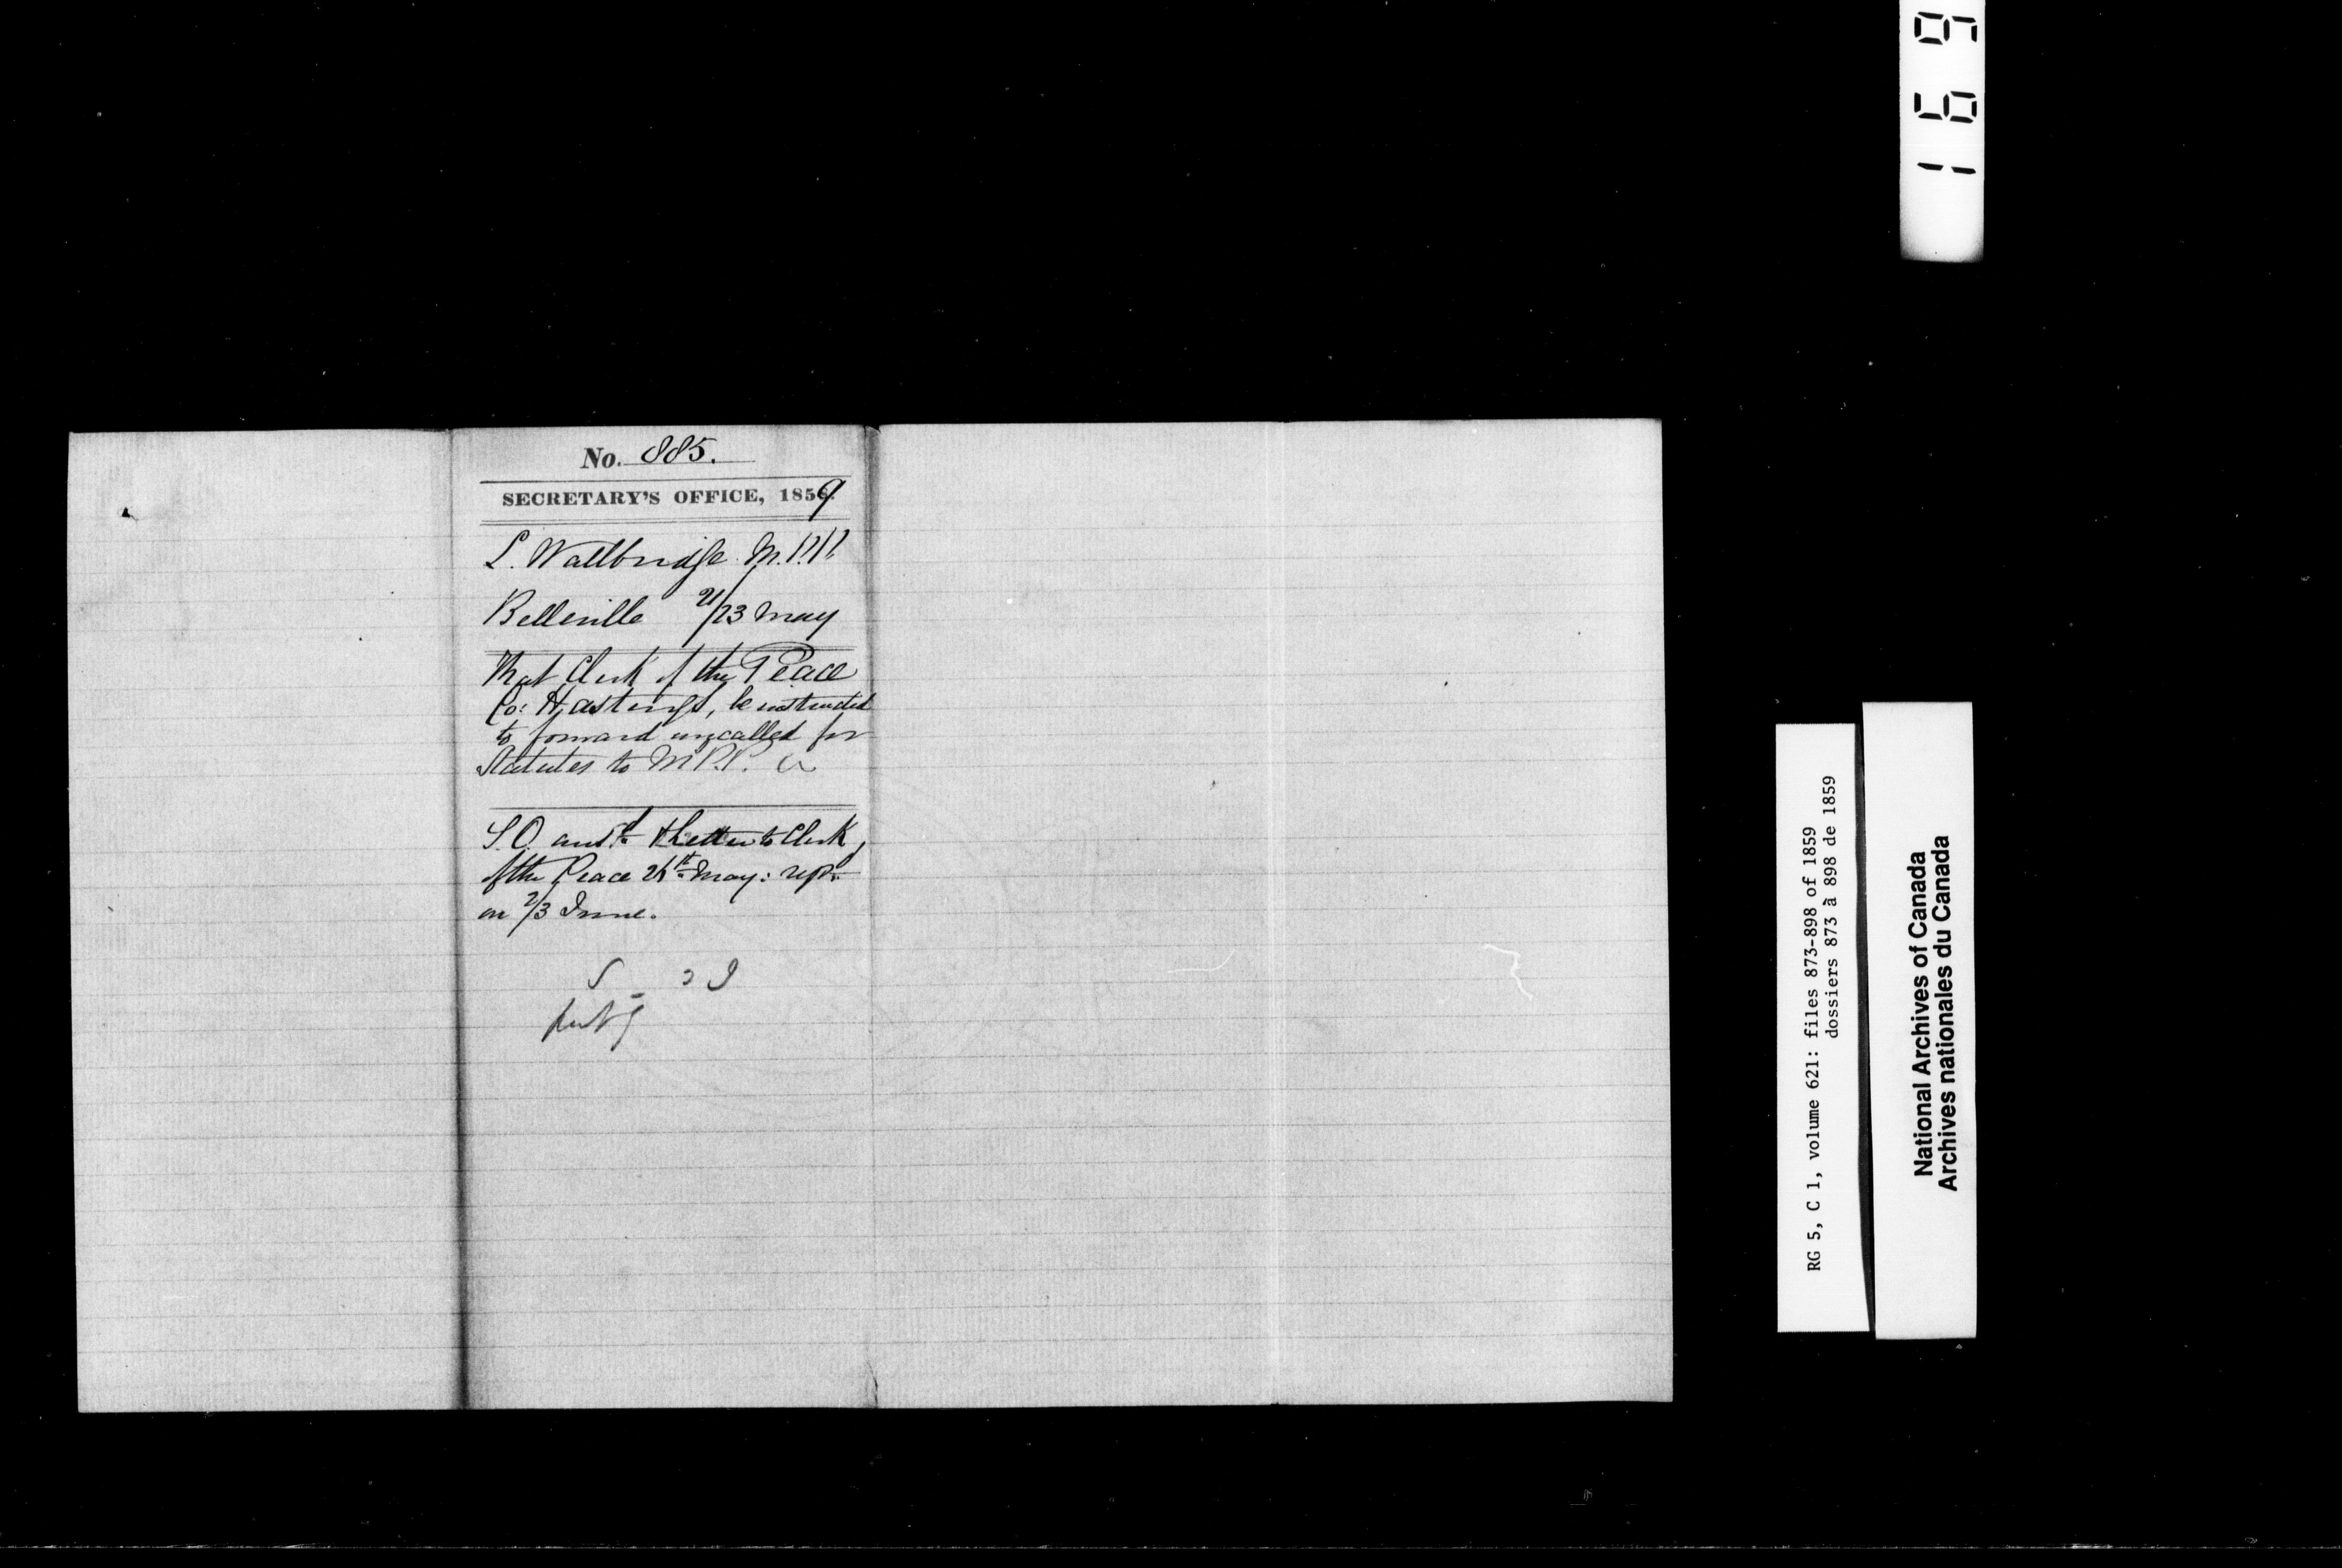 No. 885.
SECRETARY'S OFFICE, 1859
L. Wallbridge M.P.P.
Belleville 21/23 May
That Clerk of the Peace
Co: Hastings, be instructed
to forward uncalled for
Statutes to M.P.P.
S.O. and letter to Clerk
of the Peace May: repd.
on 2/3 June.
169
RG 5, C 1, volume 621: files 873-898 of 1859
dossiers 873 à 898 de 1859
National Archives of Canada
Archives nationales du Canada